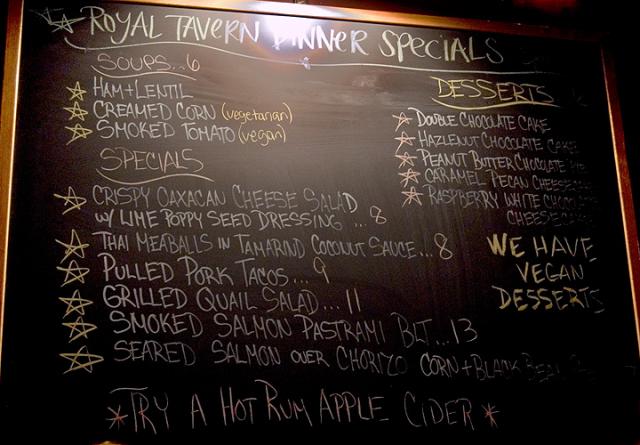 ROYAL TAVERN DINNER SPECIALS
SOUPS..6
HAM+LENTIL
CREAMED CORN (vegetarian)
SMOKED TOMATO (vegan)
SPECIALS
CRISPY OAXACAN CHEESE SALAD
W/ LIME POPPY SEED DRESSING ..8
THAI MEABALLS IN TAMARIND COCONUT SAUCE...8
PULLED PORK TACOS...9
GRILLED QUAIL SALAD...11
SMOKED SALMON PASTRAMI BLT...13
SEARED SALMON OVER CHORIZO CORN+BLACK BEAN
DESSERTS
DOUBLE CHOCOLATE CAKE
HAZLENUT CHOCOLATE CAKE
PEANUT BUTTER CHOCOLATE PIE
CARAMEL PECAN CHEESECAKE
RASPBERRY WHITE CHOCOLATE
CHEESECAKE
WE HAVE
VEGAN
DESSERTS
*TRY A HOT RUM APPLE CIDER*